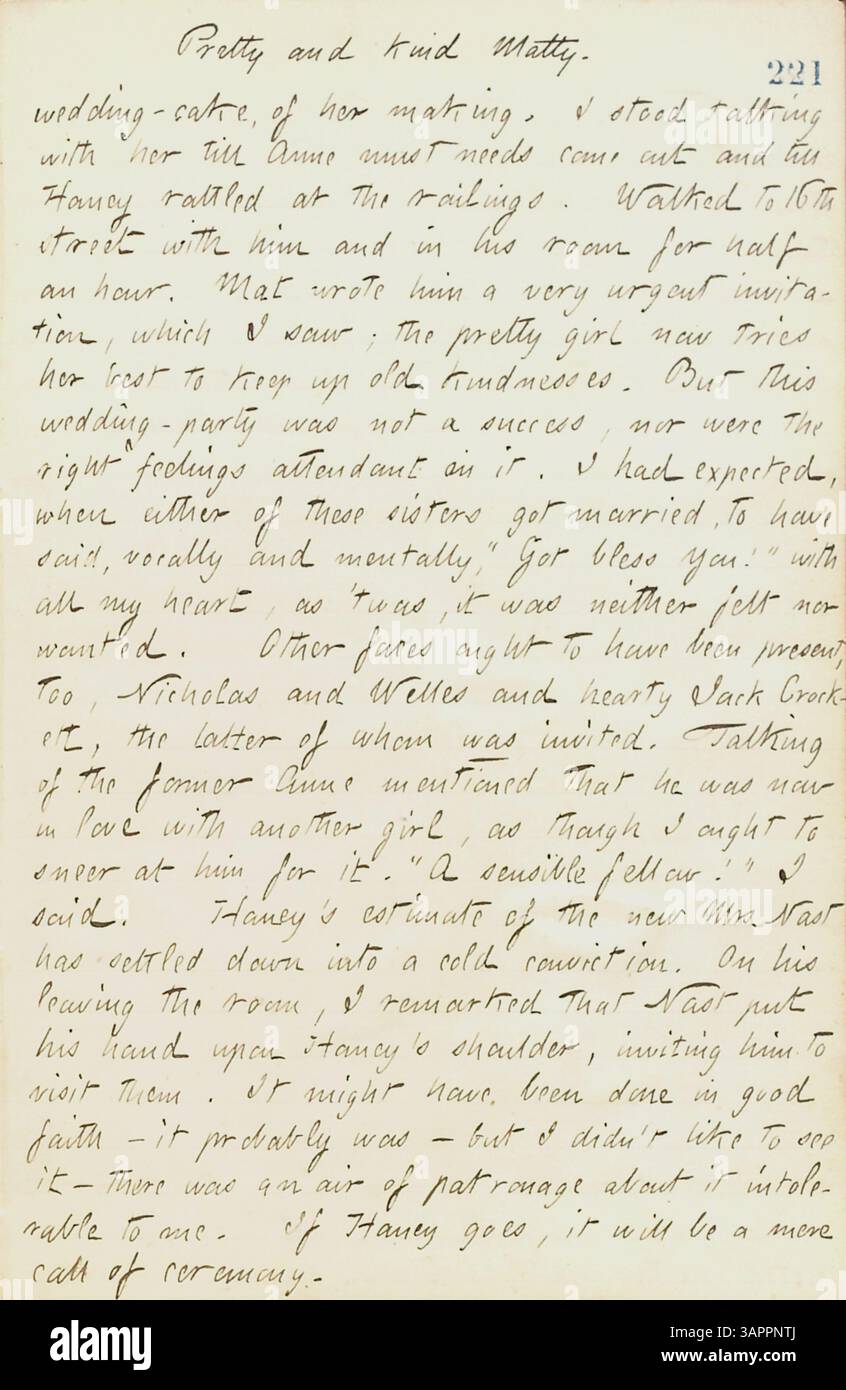 Pretty and kind Matty.
221
wedding-cake, of her making. I stood talking
with her till Anne must needs come out and till
Haney rattled at the railings. Walked to 16th
street with him and in his room for half
an hour. Mat wrote him a very urgent invita-
tion, which I saw; the pretty girl now tries
her best to keep up old kindnesses. But this
wedding-party was not a success, nor were the
right feelings attendant on it. I had expected,
when either of these sisters got married, to have
said, vocally and mentally, "Got bless you!" with
all my heart, as 'twas, it was neither felt nor
wanted. Other faces ought to have been present,
too, Nicholas and Welles and hearty Jack Crock-
ett, the latter of whom was invited. Talking
of the former Anne mentioned that he was now
in love with another girl, as though I ought to
sneer at him for it. "A sensible fellow!" I
said. Haney's estimate of the new Mrs. Nast
has settled down into a cold conviction. On his
leaving the room, I remarked that Nast put
his hand upon Haney's shoulder, inviting him to
visit them. It might have been done in good
faith - it probably was - but I didn't like to see
it - there was an air of patronage about it intole-
rable to me. If Haney goes, it will be a mere
call of ceremony.
alamy
Image ID: 3APPNTJ
www.alamy.com